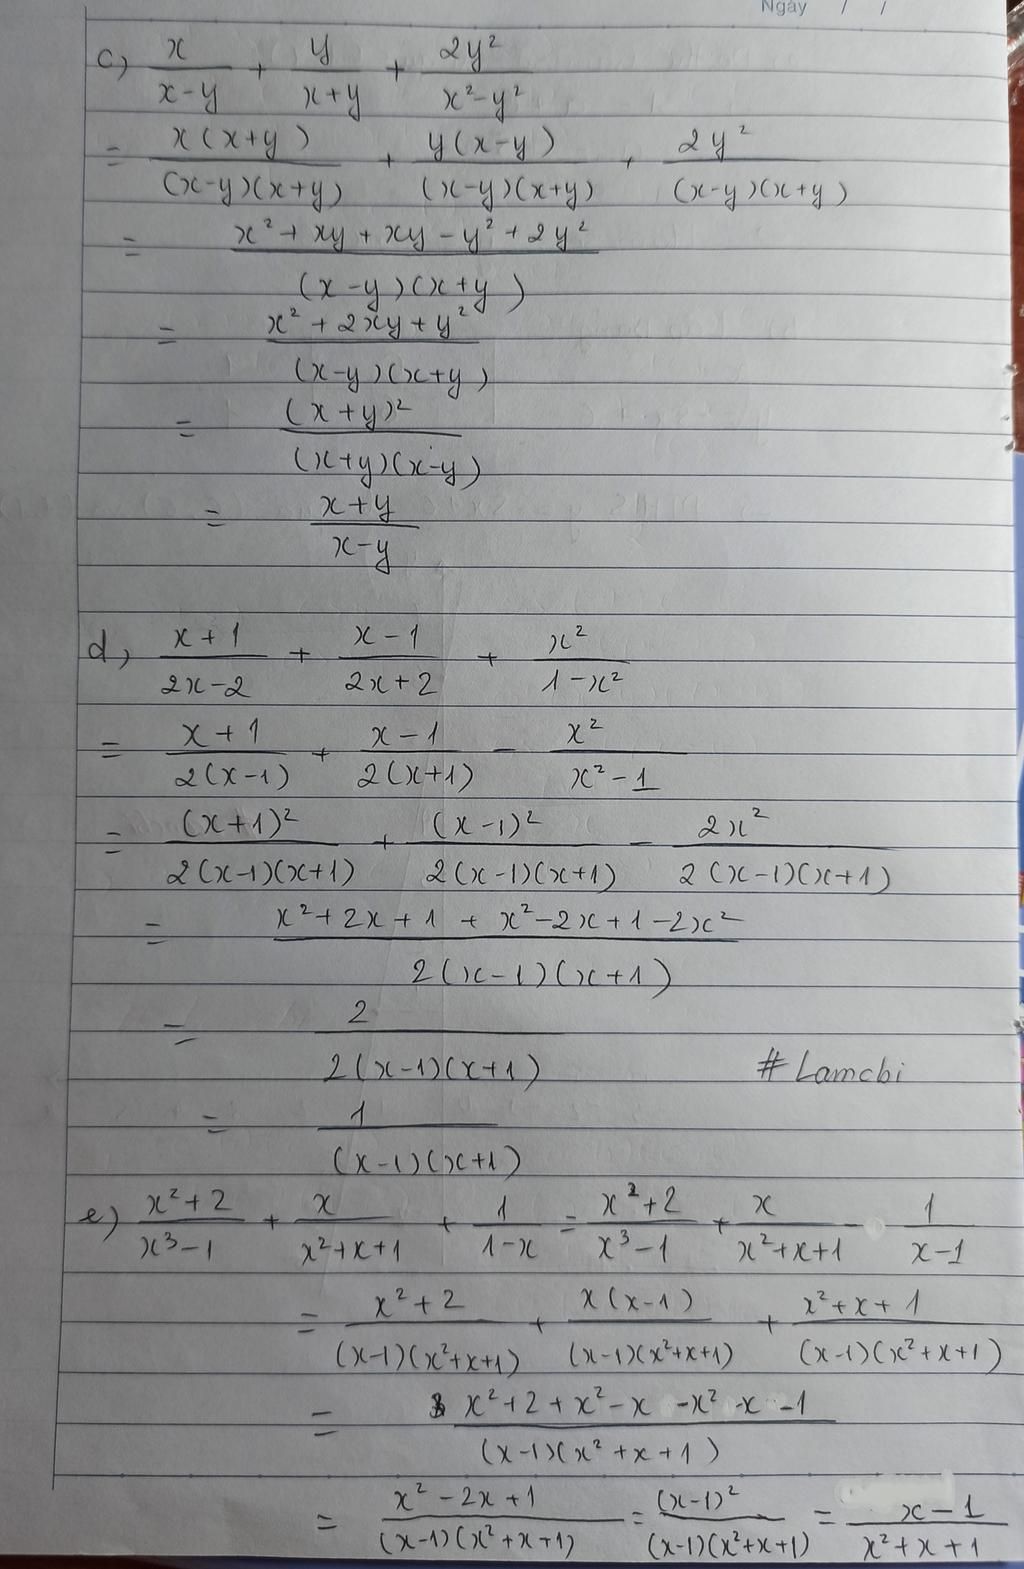 Ngày / /
c) x/(x-y) + y/(x+y) + 2y²/(x²-y²)
= x(x+y)/((x-y)(x+y)) + y(x-y)/((x-y)(x+y)) + 2y²/((x-y)(x+y))
= (x²+xy+xy-y²+2y²)/((x-y)(x+y))
= (x²+2xy+y²)/((x-y)(x+y))
= (x+y)²/((x+y)(x-y))
= (x+y)/(x-y)
d) (x+1)/(2x-2) + (x-1)/(2x+2) + x²/(1-x²)
= (x+1)/(2(x-1)) + (x-1)/(2(x+1)) - x²/(x²-1)
= (x+1)²/(2(x-1)(x+1)) + (x-1)²/(2(x-1)(x+1)) - 2x²/(2(x-1)(x+1))
= (x²+2x+1+x²-2x+1-2x²)/(2(x-1)(x+1))
= 2/(2(x-1)(x+1))
# Lamcbi
= 1/((x-1)(x+1))
e) (x²+2)/(x³-1) + x/(x²+x+1) + 1/(1-x) = (x²+2)/(x³-1) + x/(x²+x+1) 1/(x-1)
= (x²+2)/((x-1)(x²+x+1)) + x(x-1)/((x-1)(x²+x+1)) + (x²+x+1)/((x-1)(x²+x+1))
= (x²+2+x²-x-x²-x-1)/((x-1)(x²+x+1))
= (x²-2x+1)/((x-1)(x²+x+1)) = (x-1)²/((x-1)(x²+x+1)) = (x-1)/(x²+x+1)